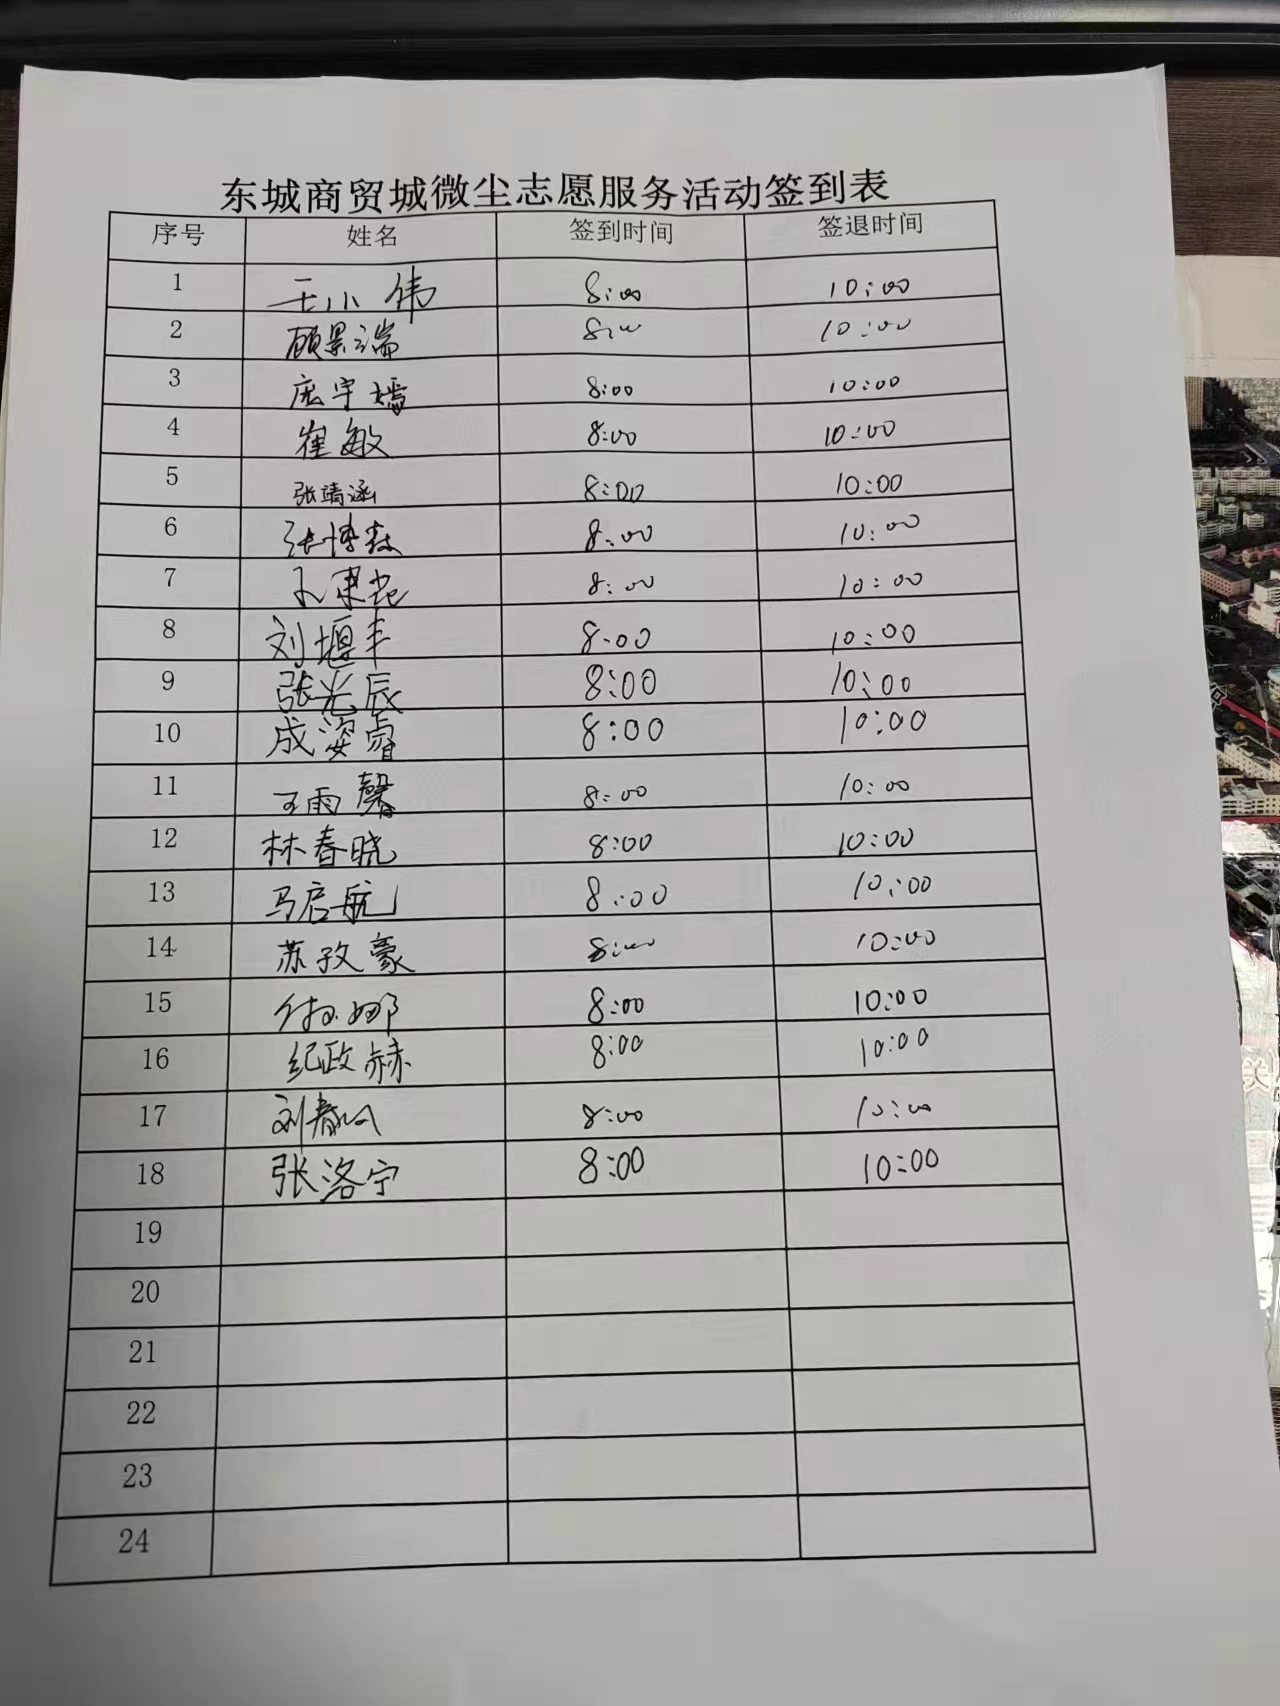 东城商贸城微尘志愿服务活动签到表
序号 姓名 签到时间 签退时间
1 王小伟 8:00 10:00
2 顾景端 8:00 10:00
3 庞宇嫣 8:00 10:00
4 崔敏 8:00 10:00
5 张靖涵 8:00 10:00
6 张博森 8:00 10:00
7 8:00 10:00
8 刘堰丰 8:00 10:00
9 张光辰 8:00 10:00
10 成姿睿 8:00 10:00
11 王雨馨 8:00 10:00
12 林春晓 8:00 10:00
13 马启航 8:00 10:00
14 苏孜豪 8:00 10:00
15 8:00 10:00
16 纪政赫 8:00 10:00
17 刘 8:00 10:00
18 张洛宁 8:00 10:00
19
20
21
22
23
24